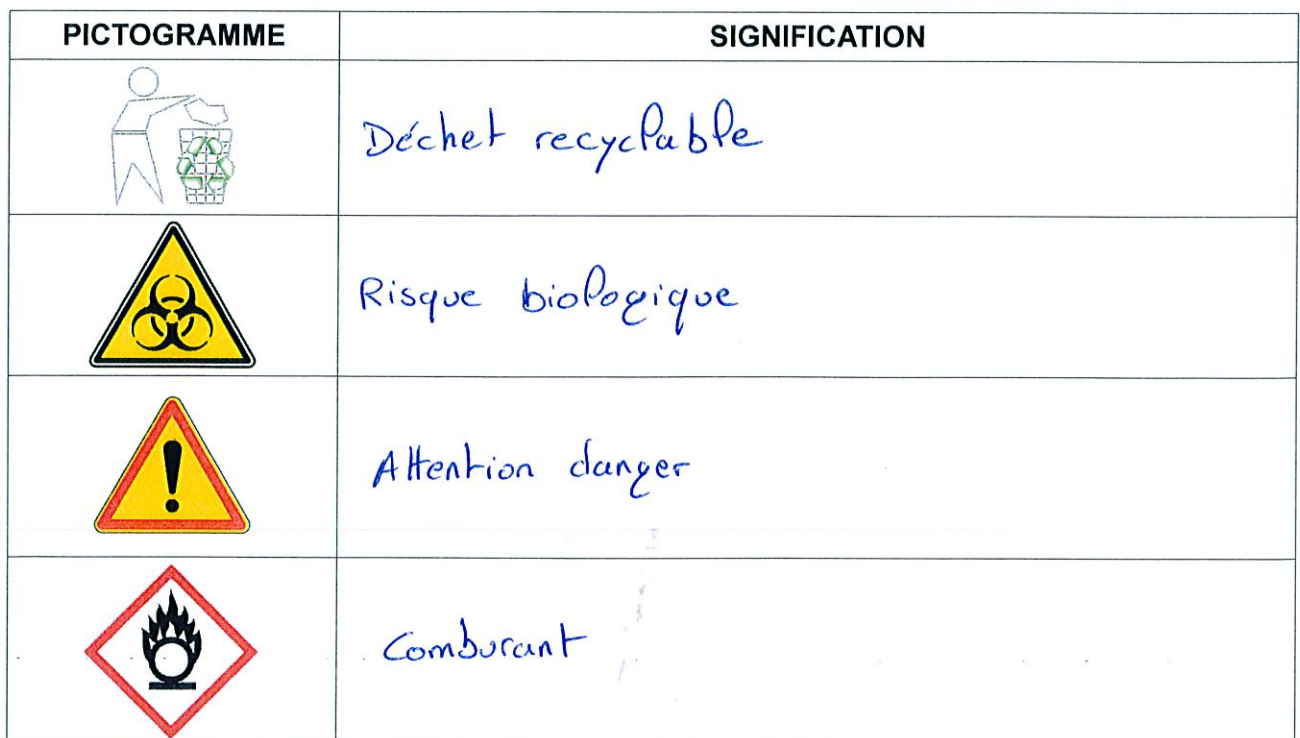 PICTOGRAMME SIGNIFICATION
Déchet recyclable
Risque biologique
!
Attention danger
Comburant